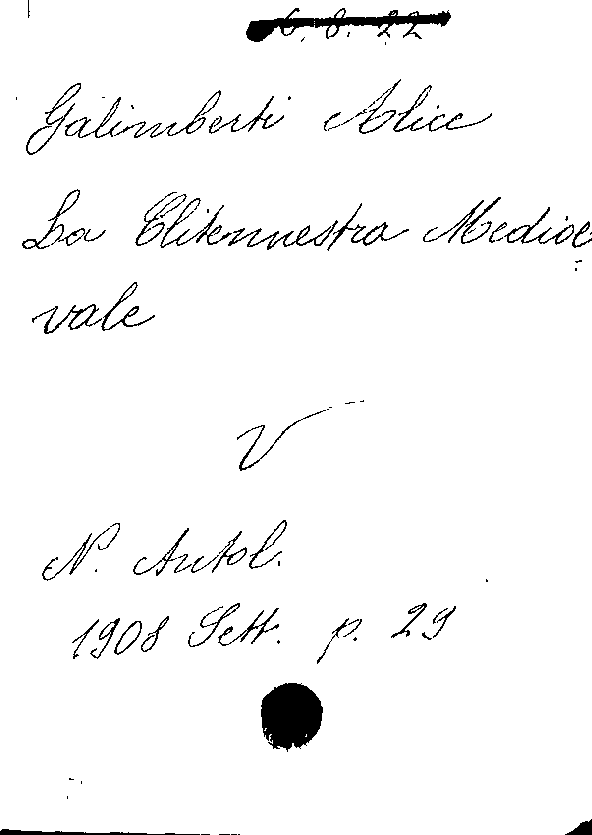 6. 8. 22
Galimberti Alice
La Clitennestra Medioe
vale
V
N. Antol.
1908 Sett. p. 29